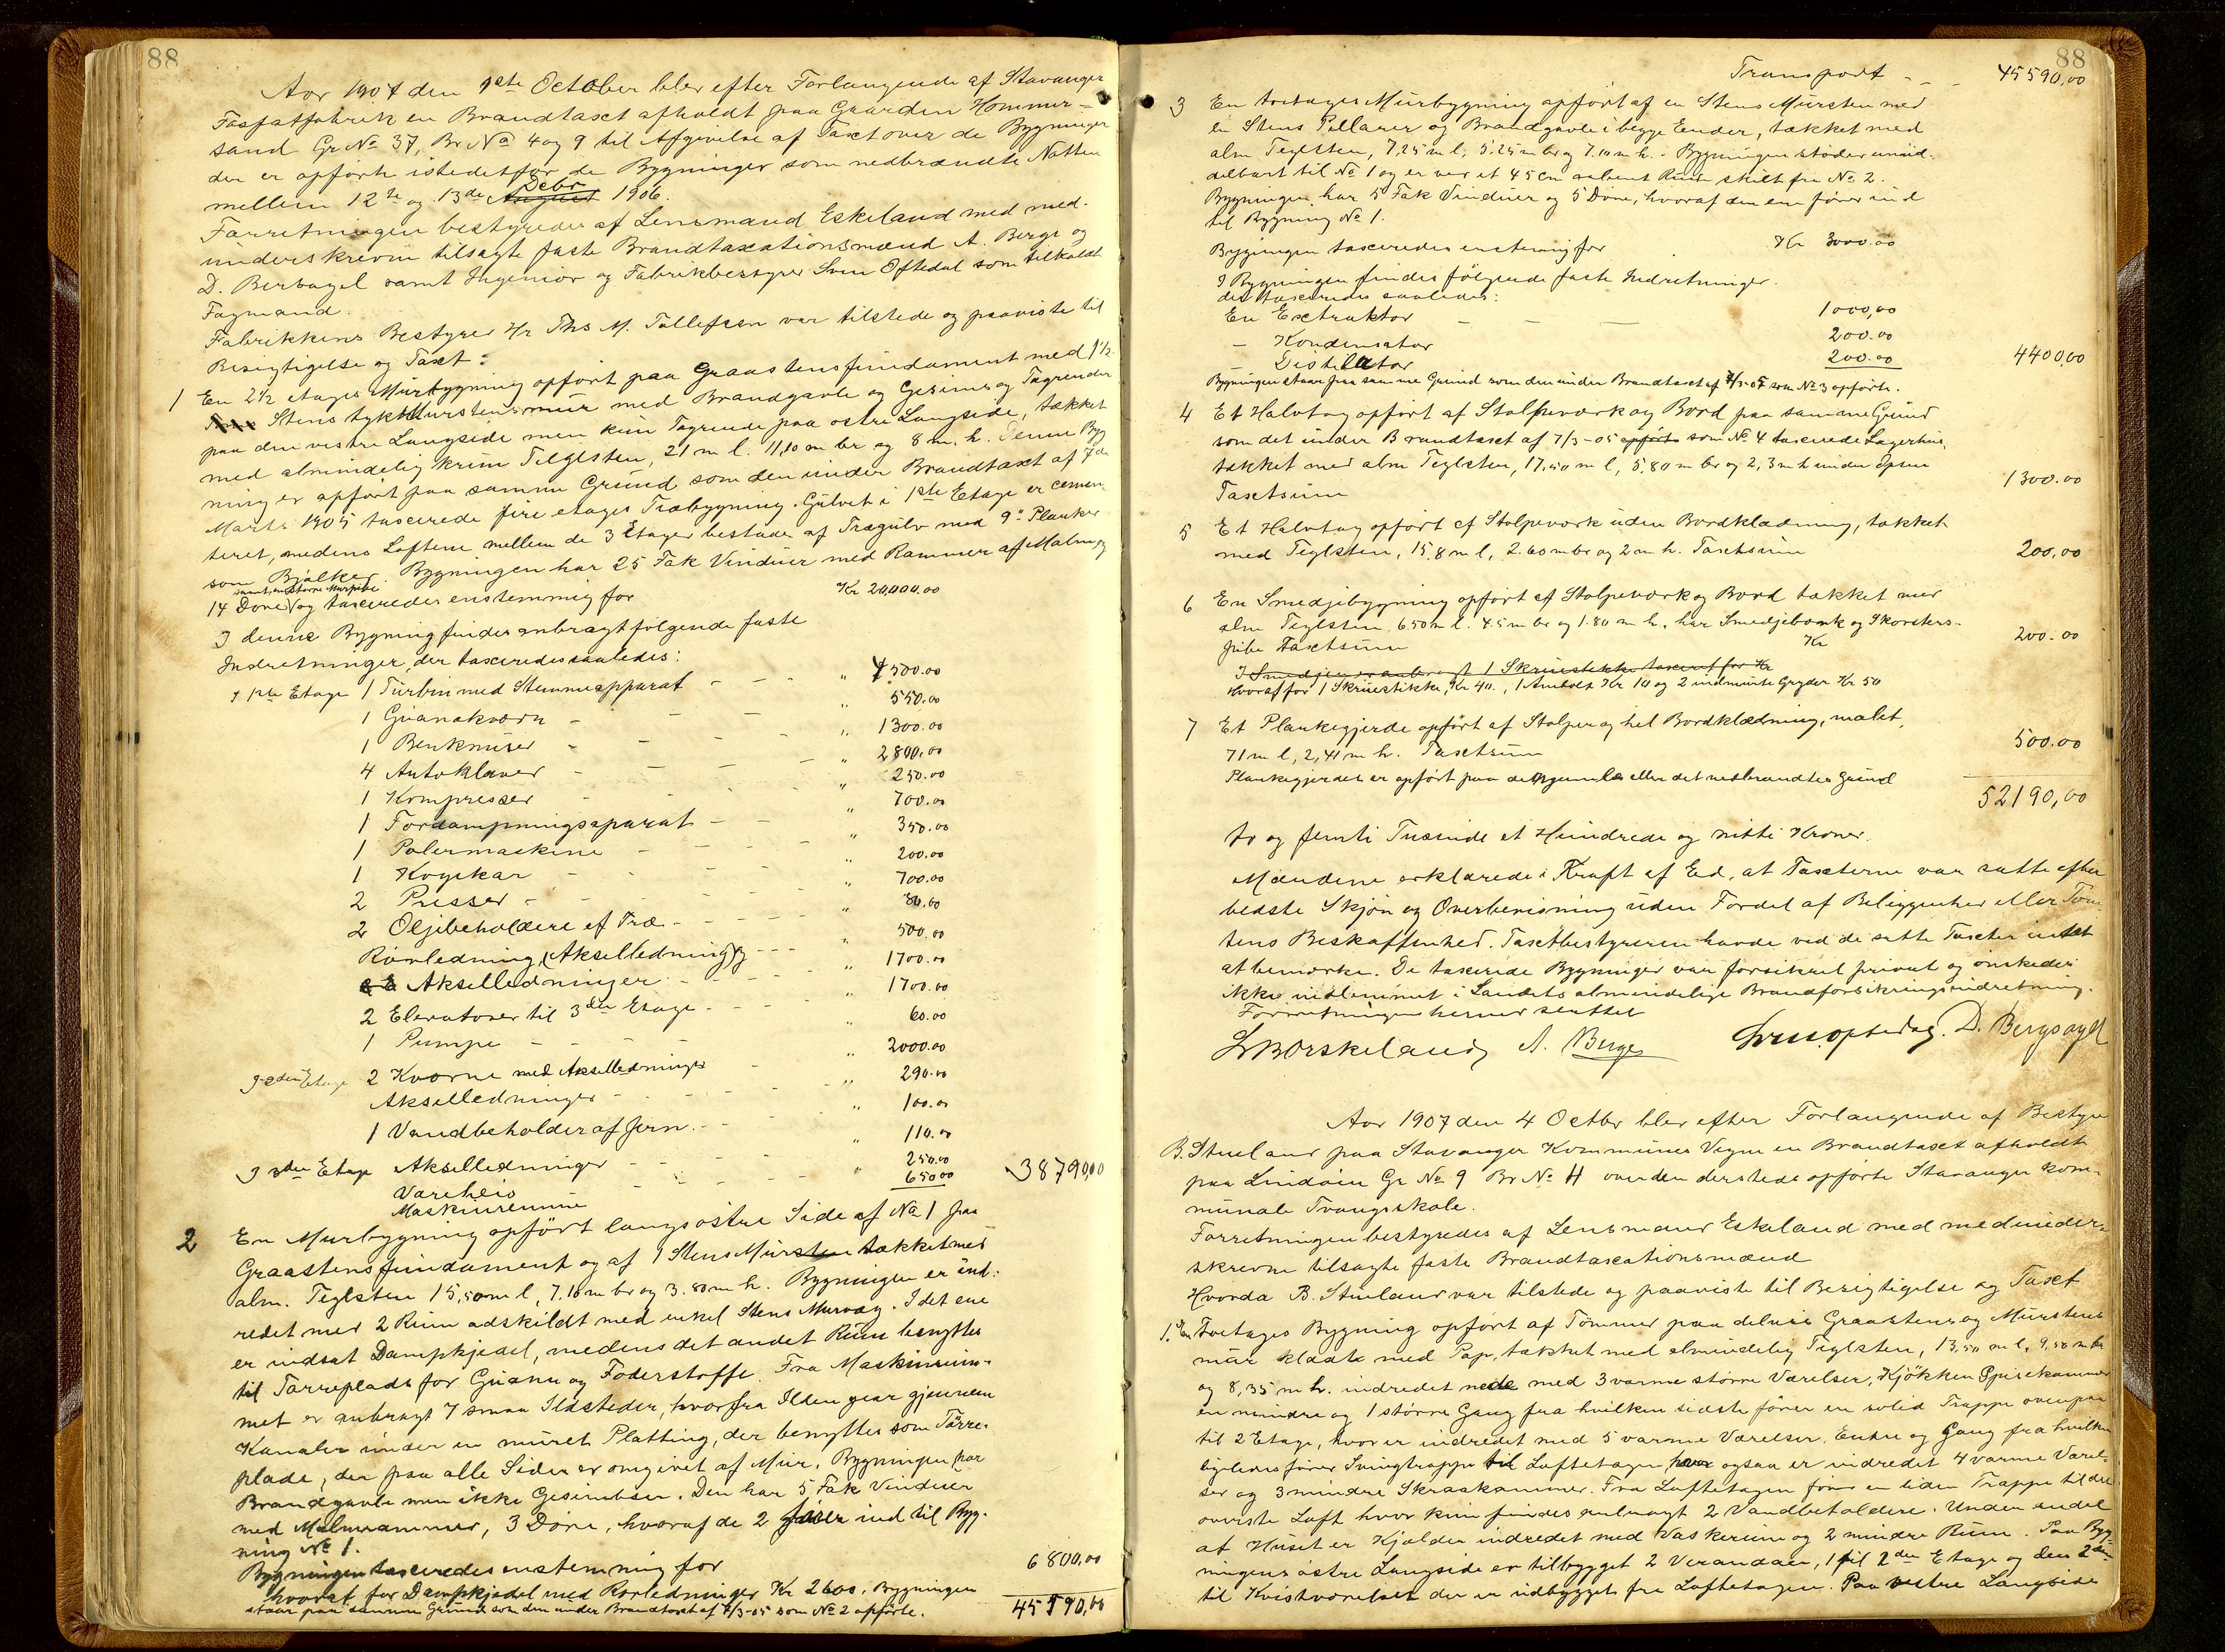 88
Aar 1907 den 1ste October blev efter Forlangende af Stavanger
Fosfatfabrik en Brandtaxt afholdt paa Gaarden Hommer-
sand Gr No 37, Br No 4 og 9 til Afgivelse af Taxt over de Bygninger
der er opførte istedetfor de Bygninger som nedbrændte Natten
mellem 12te og 13de August Debr 1906.
Forretningen bestyredes af Lensmand Eskeland med med-
underskrevne tilsagte faste Brandtaxationsmænd A. Berge og
D. Bersagel samt Ingeniør og Fabrikbestyrer Sven Oftedal som tilkaldt
Fagmand.
Fabrikkens Bestyrer Hr Ths M. Tollefsen var tilstede og paaviste til
Besigtigelse og Taxt:
1 En 2½ etages Murbygning opført paa Graastensfundament med 1½
Stens tyk Murstensmur med Brandgavle og Gesims og Tagrender
paa den vestre Langside men kun Tagrende paa østre Langside, tækket
med almindelig krum Teglsten, 21 m l. 11,10 m br og 8 m. h. Denne Byg
ning er opført paa samme Grund som den under Brandtaxt af 7de
Marts 1905 taxerede fire etages Træbygning. Gulvet i 1ste Etage er cemen-
teret, medens Loftene mellem de 3 Etager bestaar af Trægulv med 9" Planker
som Bjælker. Bygningen har 25 Fak Vinduer med Rammer af Malm og
14 Døre samt en større Murpibe og taxeredes enstemmig for Kr 20,000.00
I denne Bygning findes anbragt følgende faste
Indretninger, der taxeredes saaledes:
I 1ste Etage 1 Turbin med Stemmeapparat - - „ 4500.00
1 Guanokværn - - - „ 550.00
1 Benknuser - - - „ 1300.00
4 Autoklaver - - - „ 2800.00
1 Kompresser - - - „ 250.00
1 Fordampningsaparat - - „ 700.00
1 Polermaskine - - - „ 350.00
1 Kogekar - - - „ 200.00
2 Presser - - - „ 700.00
2 Oljebeholdere af Træ - - - „ 80.00
Rørledning, (Akselledning) - - - „ 500.00
Akselledninger - - - „ 1700.00
2 Elevatorer til 3die Etage - - „ 1700.00
1 Pumpe - - - „ 60.00
I 2den Etage 2 Kværne med Akselledninger - „ 2000.00
Akselledninger - - - „ 290.00
1 Vandbeholder af Jern - - „ 100.00
I 3die Etage Akselledninger - - - „ 110.00
Vareheis - - - „ 250.00
Maskinremme - - - 650.00 38790,00
2 En Murbygning opført langs østre Side af No 1 paa
Graastensfundament og af 1 Stens Mursten tækket med
alm. Teglsten 15,50 m l, 7.10 m br og 3.80 m h. Bygningen er ind-
redet med 2 Rum adskildt med enkel Stens Murvæg. I det ene
er indsat Dampkjedel, medens det andet Rum benyttes
til Tørreplads for Guano og Foderstoffe. Fra Maskinrum-
met er anbragt 7 smaa Ildsteder, hvorfra Ilden gaar gjennem
Kanaler under en muret Platting, der benyttes som Tørre-
plade, der paa alle Sider er omgivet af Mur. Bygningen har
Brandgavle men ikke Gesimbser. Den har 5 Fak Vinduer
med Malmrammer, 3 Døre, hvoraf de 2 fører ind til Byg-
ning No 1.
Bygningen taxeredes enstemmig for 6800,00
hvoraf for Dampkjedel med Rørledninger Kr 2600. Bygningen
staar paa samme Grund som den under Brandtaxt af 7/3-05 som No 2 opførte. 45590,00
88
Transport - - 45590,00
3 En toetages Murbygning opført af en Stens Mursten med
en Stens Pillarer og Brandgavle i begge Ender, tækket med
alm Teglsten, 7,25 m l, 5.25 m br og 7.10 m h. Bygningen støder umid-
delbart til No 1 og er ved et 45 cm aabent Rum skilt fra No 2.
Bygningen har 5 Fak Vinduer og 5 Døre, hvoraf den ene fører ind
til Bygning No 1.
Bygningen taxeredes enstemmig for Kr 3000.00
I Bygningen findes følgende faste Indretninger
der taxeredes saaledes:
En Extraktor - - - 1000,00
- Kondensator 200.00
- Distilator 200.00 4400,00
Bygningen staar paa samme Grund som den under Brandtaxt af 7/3-05 som No 3 opførte.
4 Et Halvtag opført af Stolpeværk og Bord paa samme Grund
som det under Brandtaxt af 7/3-05 opført som No. 4 taxerede Lagerhus,
tækket med alm Teglsten, 17,50 m l, 5,80 m br og 2,3 m h under Øpsen
Taxtsum 1300.00
5 Et Halvtag opført af Stolpeværk uden Bordklædning, tækket
med Teglsten, 15,8 m l, 2.60 m br og 2 m h. Taxtsum 200,00
6 En Smedjebygning opført af Stolpeværk og Bord tækket med
alm Teglsten, 6.50 m l. 4.5 m br og 1.80 m h, har Smedjebænk og Skorstens-
pibe Taxtsum Kr 200.00
I Smedjen er anbragt 1 Skruestikke taxeret for Kr
hvoraf for 1 Skruestikke, Kr 40., 1 Ambolt Kr 10 og 2 indmurte Gryder Kr 50
7 Et Plankegjerde opført af Stolper og hel Bordklædning, malet,
71 m l, 2,41 m h. Taxtsum 500.00
Plankegjerdet er opført paa det gamle eller det nedbrændtes Grund
52190,00
to og femti Tusinde et Hundrede og nitti Kroner.
Mændene erklærede i Kraft af Ed, at Taxterne var satte efter
bedste Skjøn og Overbevisning uden Fordel af Beliggenhed eller Tom-
tens Beskaffenhed. Taxtbestyreren havde ved de satte Taxter intet
at bemærke. De taxerede Bygninger var forsikret privat og ønskedes
ikke indlemmet i Landets almindelige Brandforsikringsindretning.
Forretningen hermed sluttet
Eskeland A. Berge Sven Oftedal. D. Bergsagel
Aar 1907 den 4 Octbr blev efter Forlangende af Bestyrer
B. Stueland paa Stavanger Kommunes Vegne en Brandtaxt afholdt
paa Lindøen Gr No 9 Br No 4 over den dersteds opførte Stavanger kom-
munale Tvangsskole.
Forretningen bestyredes af Lensmand Eskeland med medunder-
skrevne tilsagte faste Brandtaxationsmænd
Hvorda B. Stueland var tilstede og paaviste til Besigtigelse og Taxt
1. En Toetages Bygning opført af Tømmer paa delvis Graastens og Murstens
mur klædt med Pap, tækket med almindelig Teglsten, 13,50 m l, 9,50 m br
og 8,35 m h. indredet nede med 3 varme større Værelser, Kjøkken Spisekammer
en mindre og 1 større Gang fra hvilken sidste fører en solid Trappe ovenpaa
til 2 Etage, hvor er indredet med 5 varme Værelser, Entre og Gang fra hvilken
ligeledes fører Svingtrappe til Loftetagen hvor ogsaa er indredet 4 varme Værel-
ser og 3 mindre Skraakammer. Fra Loftetagen fører en liden Trappe til det
øverste Loft hvor kun findes anbragt 2 Vandbeholdere. Under endel
af Huset er Kjælder indredet med Vaskerum og 2 mindre Rum. Paa Byg-
ningens østre Langside er tilbygget 2 Verandaer, 1 til 2den Etage og den 2den
til Kvistværelset der er udbygget fra Loftetagen. Paa vestre Langside